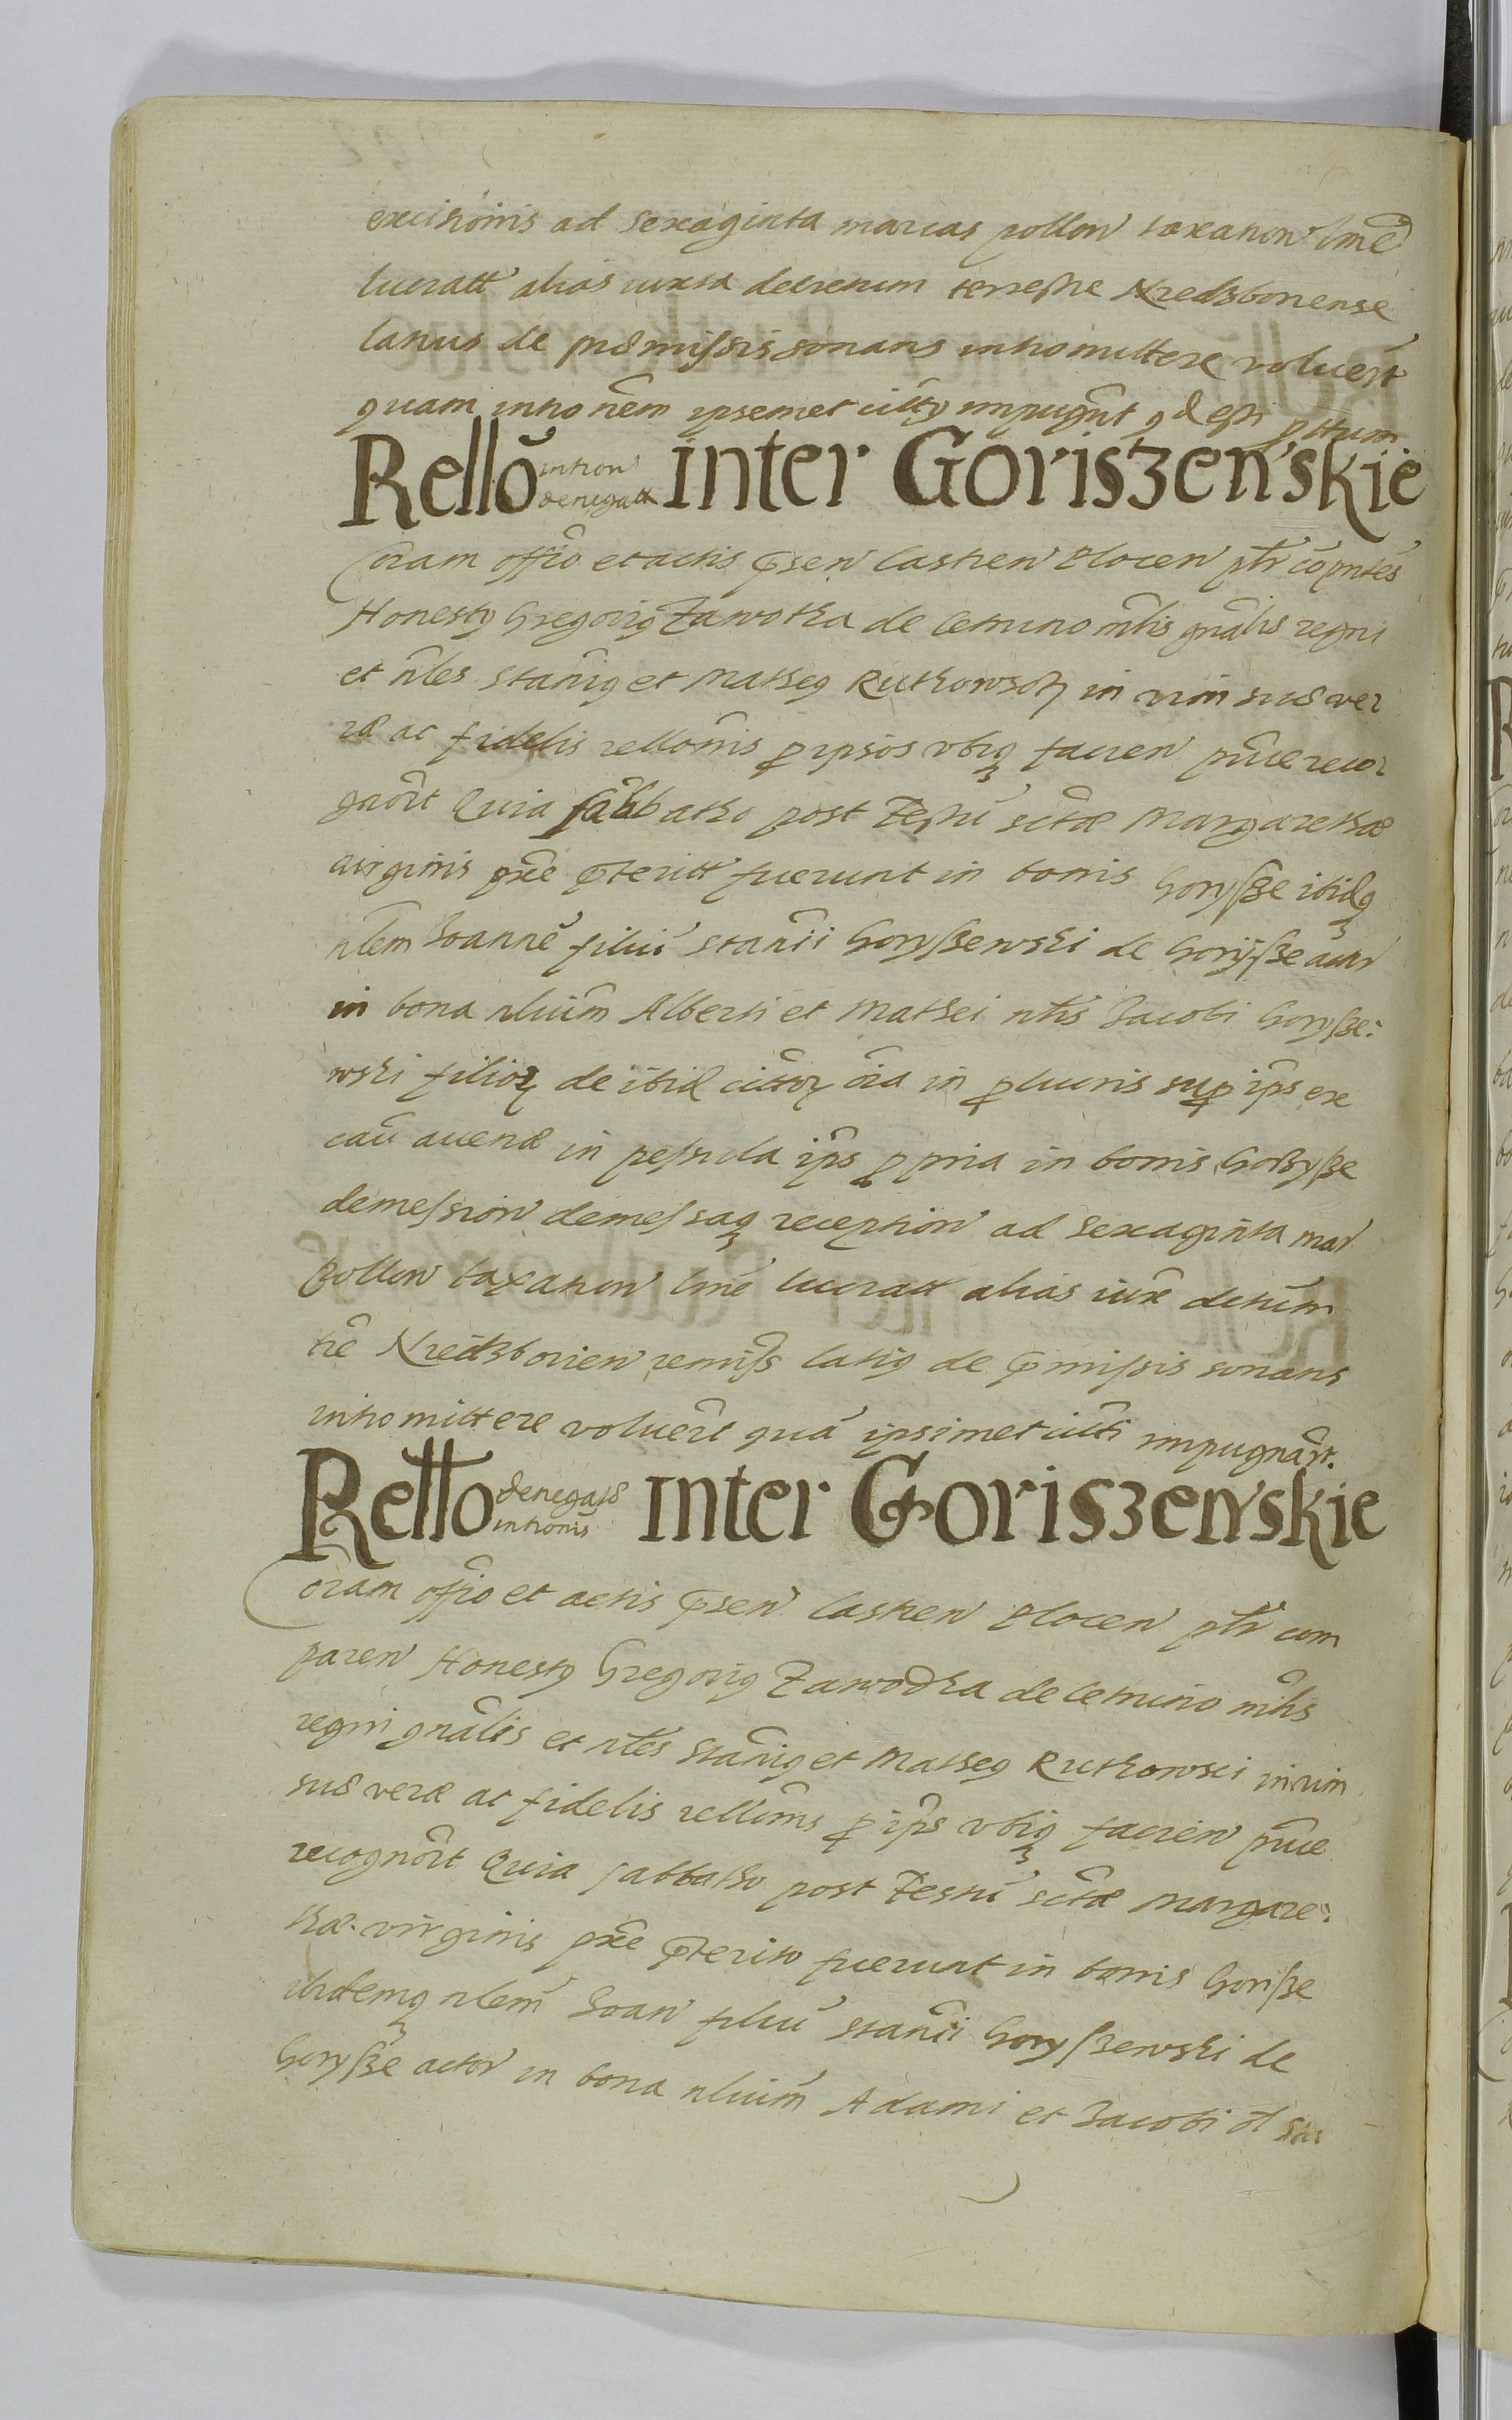 excisionis ad sexaginta marcas pollon' taxation' lmē
lucratt' alias iuxta decretum terrestre Nredzbonense
latius de præmissis sonans intromittere voluert
quam intronem ipsemet citty impugnt qd est pttum
Rello intron' denegatt inter Goriszenskie
Coram offō et actis psen' Castren' Plocen' ptr cōpntes
Honestq Gregoriq Zawotka de Cetruno mlis gnalis regni
et nles Staniq et Matheq Rutkowsch in vim suæ ver
æ ac fidelis rellonis p ipsos vbiq facien' pnue recor
gnort Quia sabbatho post Festū sctæ Margarethæ
virginis pxe pteritt' fuerunt in bonis Gorysze ibidq
nlem Joannē filiū Stanii Goryszewski de Gorijsze actor
in bona nliūm Alberti et Mathei nlis Jacobi Gorysze:
wski filioꝝ de ibid cittoꝝ oia in p lucris sup ips ex
caū avenæ in pestula ips p pria in bonis Gorzysze
demession' demessaq reception' ad sexaginta mar
Pollon' taxation' lmē lucratt alias iux decrūm
tre Nredzborien' remiss latiq de pmissis sonans
intromittere voluert quā ipsimet citti impugnart.
Retto denegatæ intronis inter Goriszenskie
Coram offō et actis psen' Castren' Plocen' ptr com
paren' Honestq Gregoriq Zawodka de Cetruno mlis
regni gnalis et nles Staniq et Matheq Rutkowsci in vim
suæ veræ ac fidelis rellonis p ips vbiq facien' pnue
recognort Quia sabbatho post Festū sctæ Margare:
thæ virginis pxe pterito fuerunt in bonis Gorisze
ibidemq nlem Joan' filiū Stanii Goryszewski de
Gorysze actor in bona nliūm Adami et Jacobi ol Sta